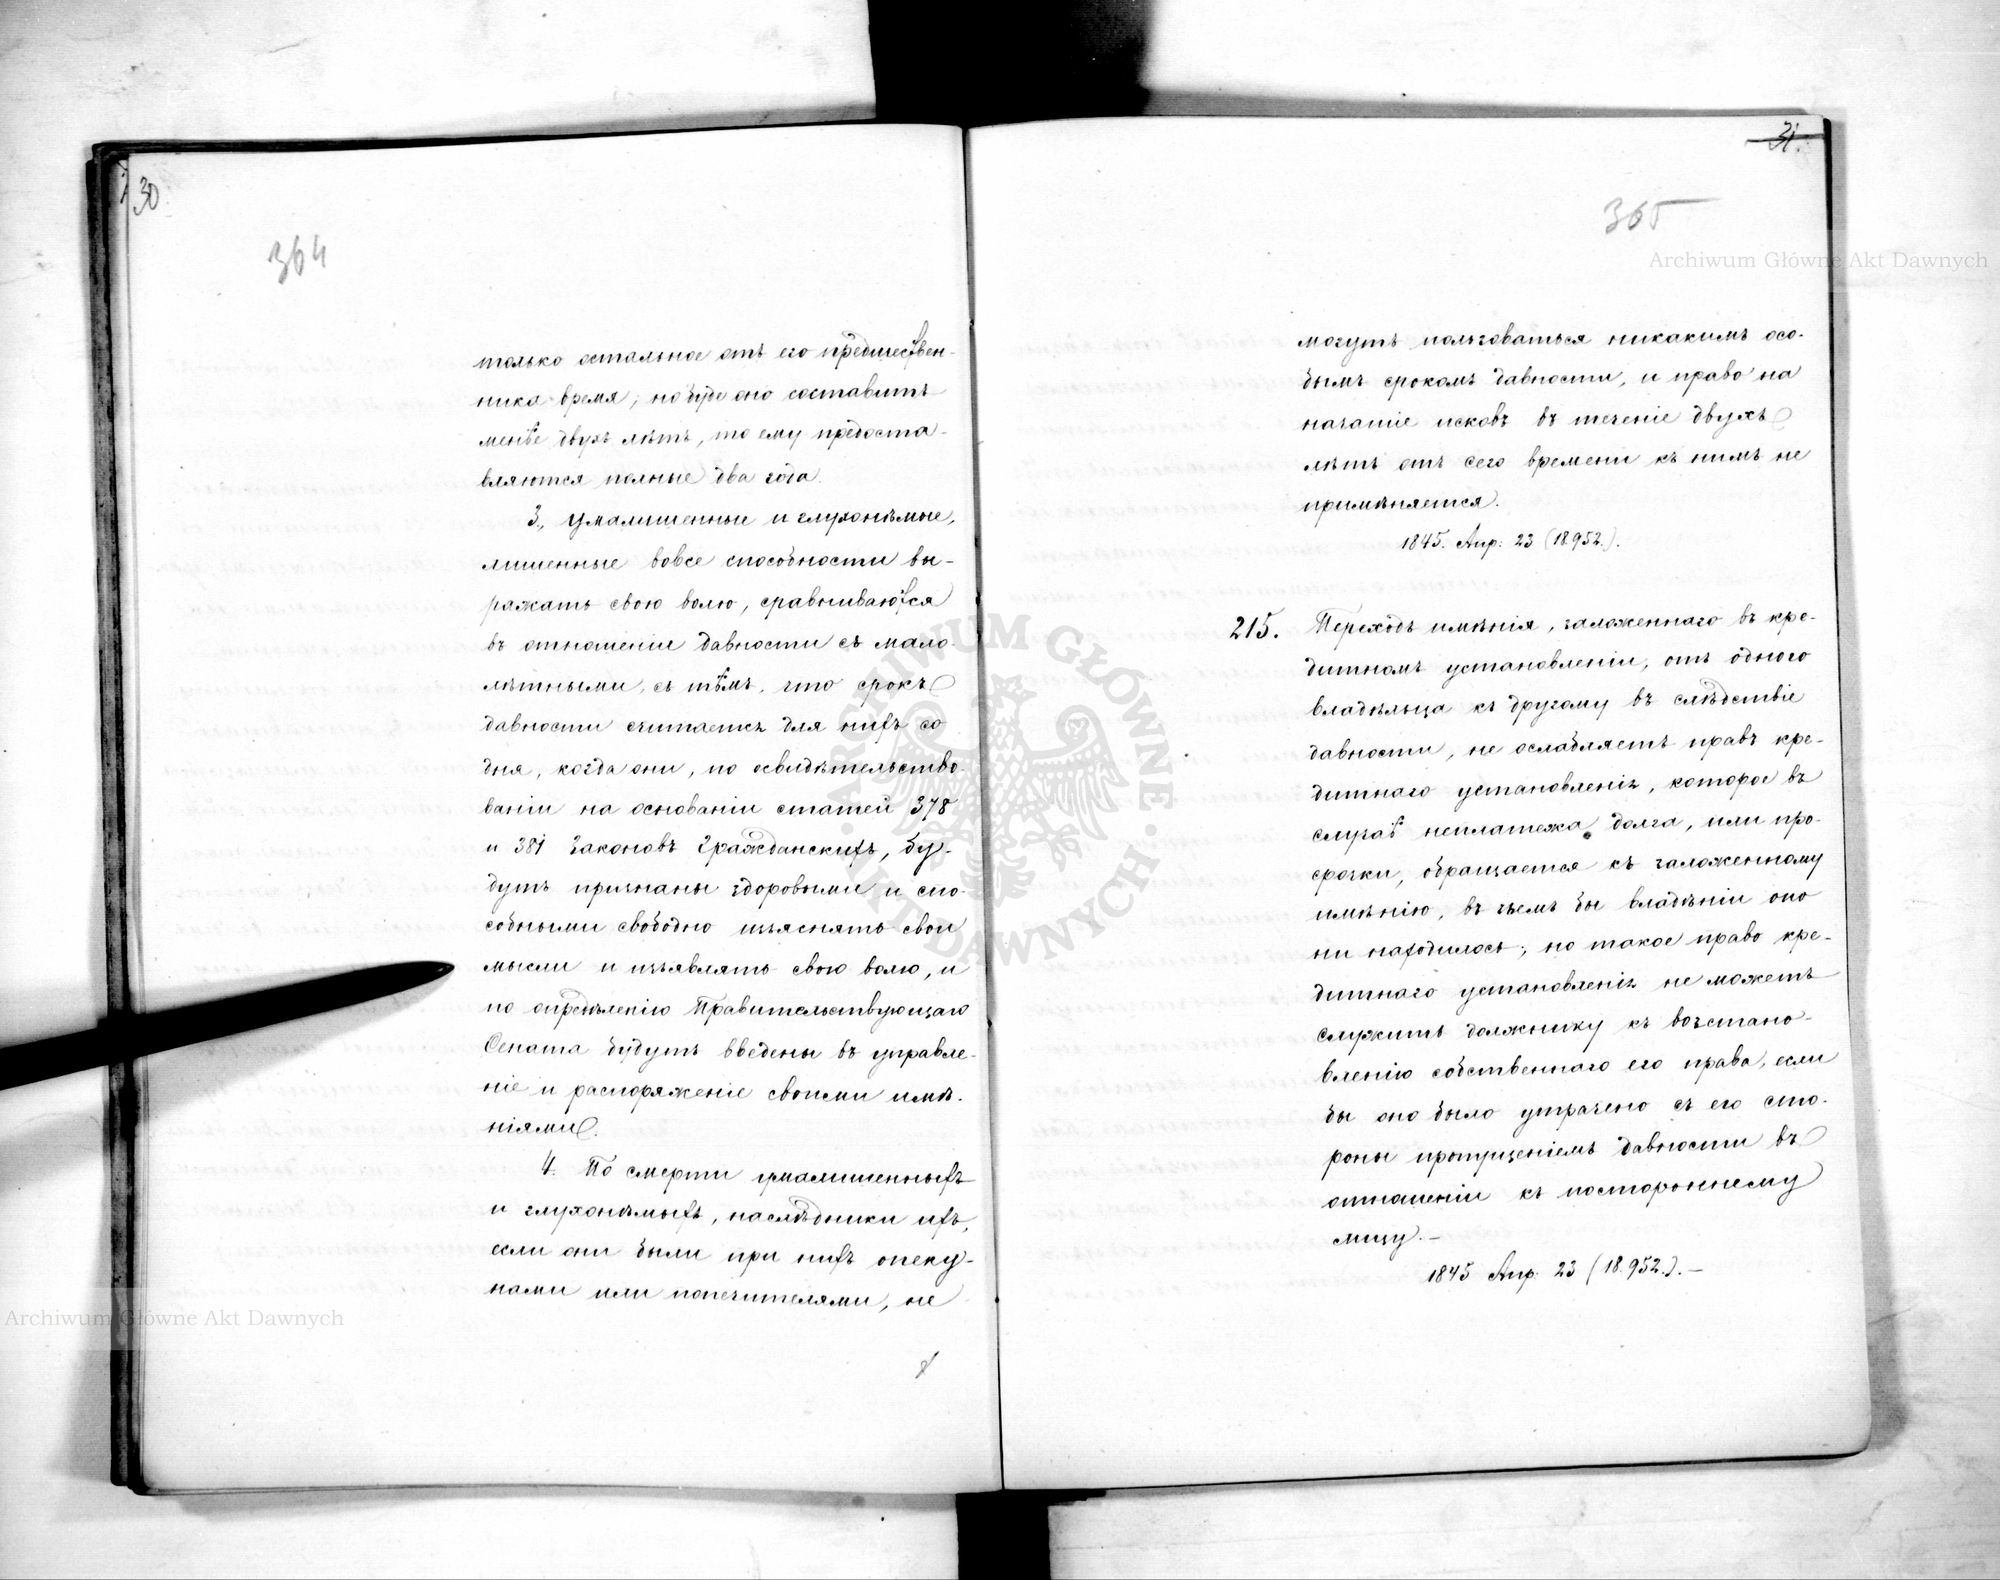 30
364
только остальное отъ его предшествен-
ника время; но буде оно составитъ
менѣе двухъ лѣтъ, то ему предоста-
вляются полные два года.
3., Умалишенные и глухонѣмые,
лишенные вовсе способности вы-
ражать свою волю, сравниваются
въ отношеніи давности съ мало-
лѣтными, съ тѣмъ, что срокъ
давности считается для нихъ со
дня, когда они, по освидѣтельство-
ваніи на основаніи статей 378
и 381 Законовъ Гражданскихъ, бу-
дутъ признаны здоровыми и спо-
собными свободно изъяснять свои
мысли и изъявлять свою волю, и
по опредѣленію Правительствующаго
Сената будутъ введены въ управле-
ніе и распоряженіе своими имѣ-
ніями.
4. По смерти умалишенныхъ
и глухонѣмыхъ, наслѣдники ихъ,
если они были при нихъ опеку-
нами или попечителями, не
31.
365
могутъ пользоваться никакимъ осо-
бымъ срокомъ давности, и право на
начатіе исковъ въ теченіе двухъ
лѣтъ отъ сего времени къ нимъ не
примѣняется.
1845. Апр: 23 (18952.).
215. Переходъ имѣнія, заложеннаго въ кре-
дитномъ установленіи, отъ одного
владѣльца къ другому въ слѣдствіе
давности, не ослабляетъ правъ кре-
дитнаго установленія, которое въ
случаѣ неплатежа долга, или про-
срочки, обращается къ заложенному
имѣнію, въ чьемъ бы владѣніи оно
ни находилось; но такое право кре-
дитнаго установленія не можетъ
служить должнику къ возстано-
вленію собственнаго его права, если
бы оно было утрачено съ его сто-
роны пропущеніемъ давности въ
отношеніи къ постороннему
лицу. —
1845 Апр: 23 (18.952.). —
Archiwum Główne Akt Dawnych
Archiwum Główne Akt Dawnych
ARCHIWUM GŁÓWNE · AKT DAWNYCH ·